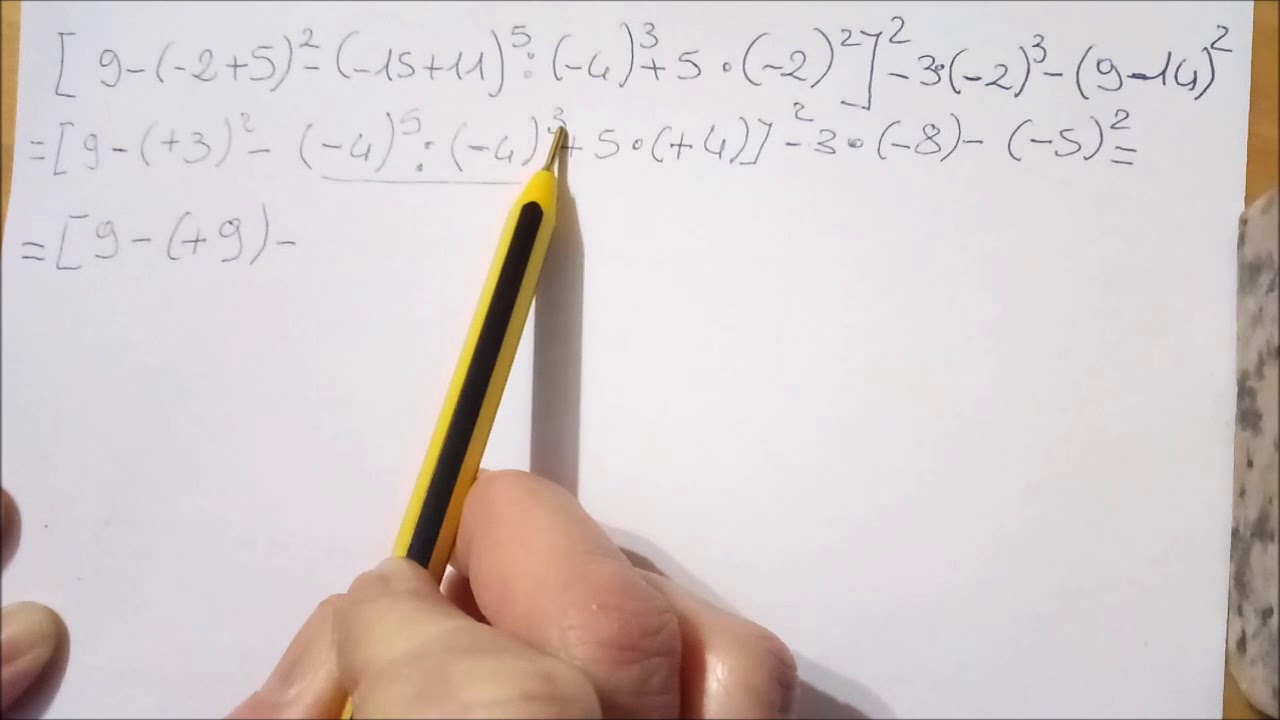 [9-(-2+5)²-(-15+11)⁵:(-4)³+5•(-2)²]²-3•(-2)³-(9-14)²
=[9-(+3)²-(-4)⁵:(-4)³+5•(+4)]²-3•(-8)-(-5)²=
=[9-(+9)-